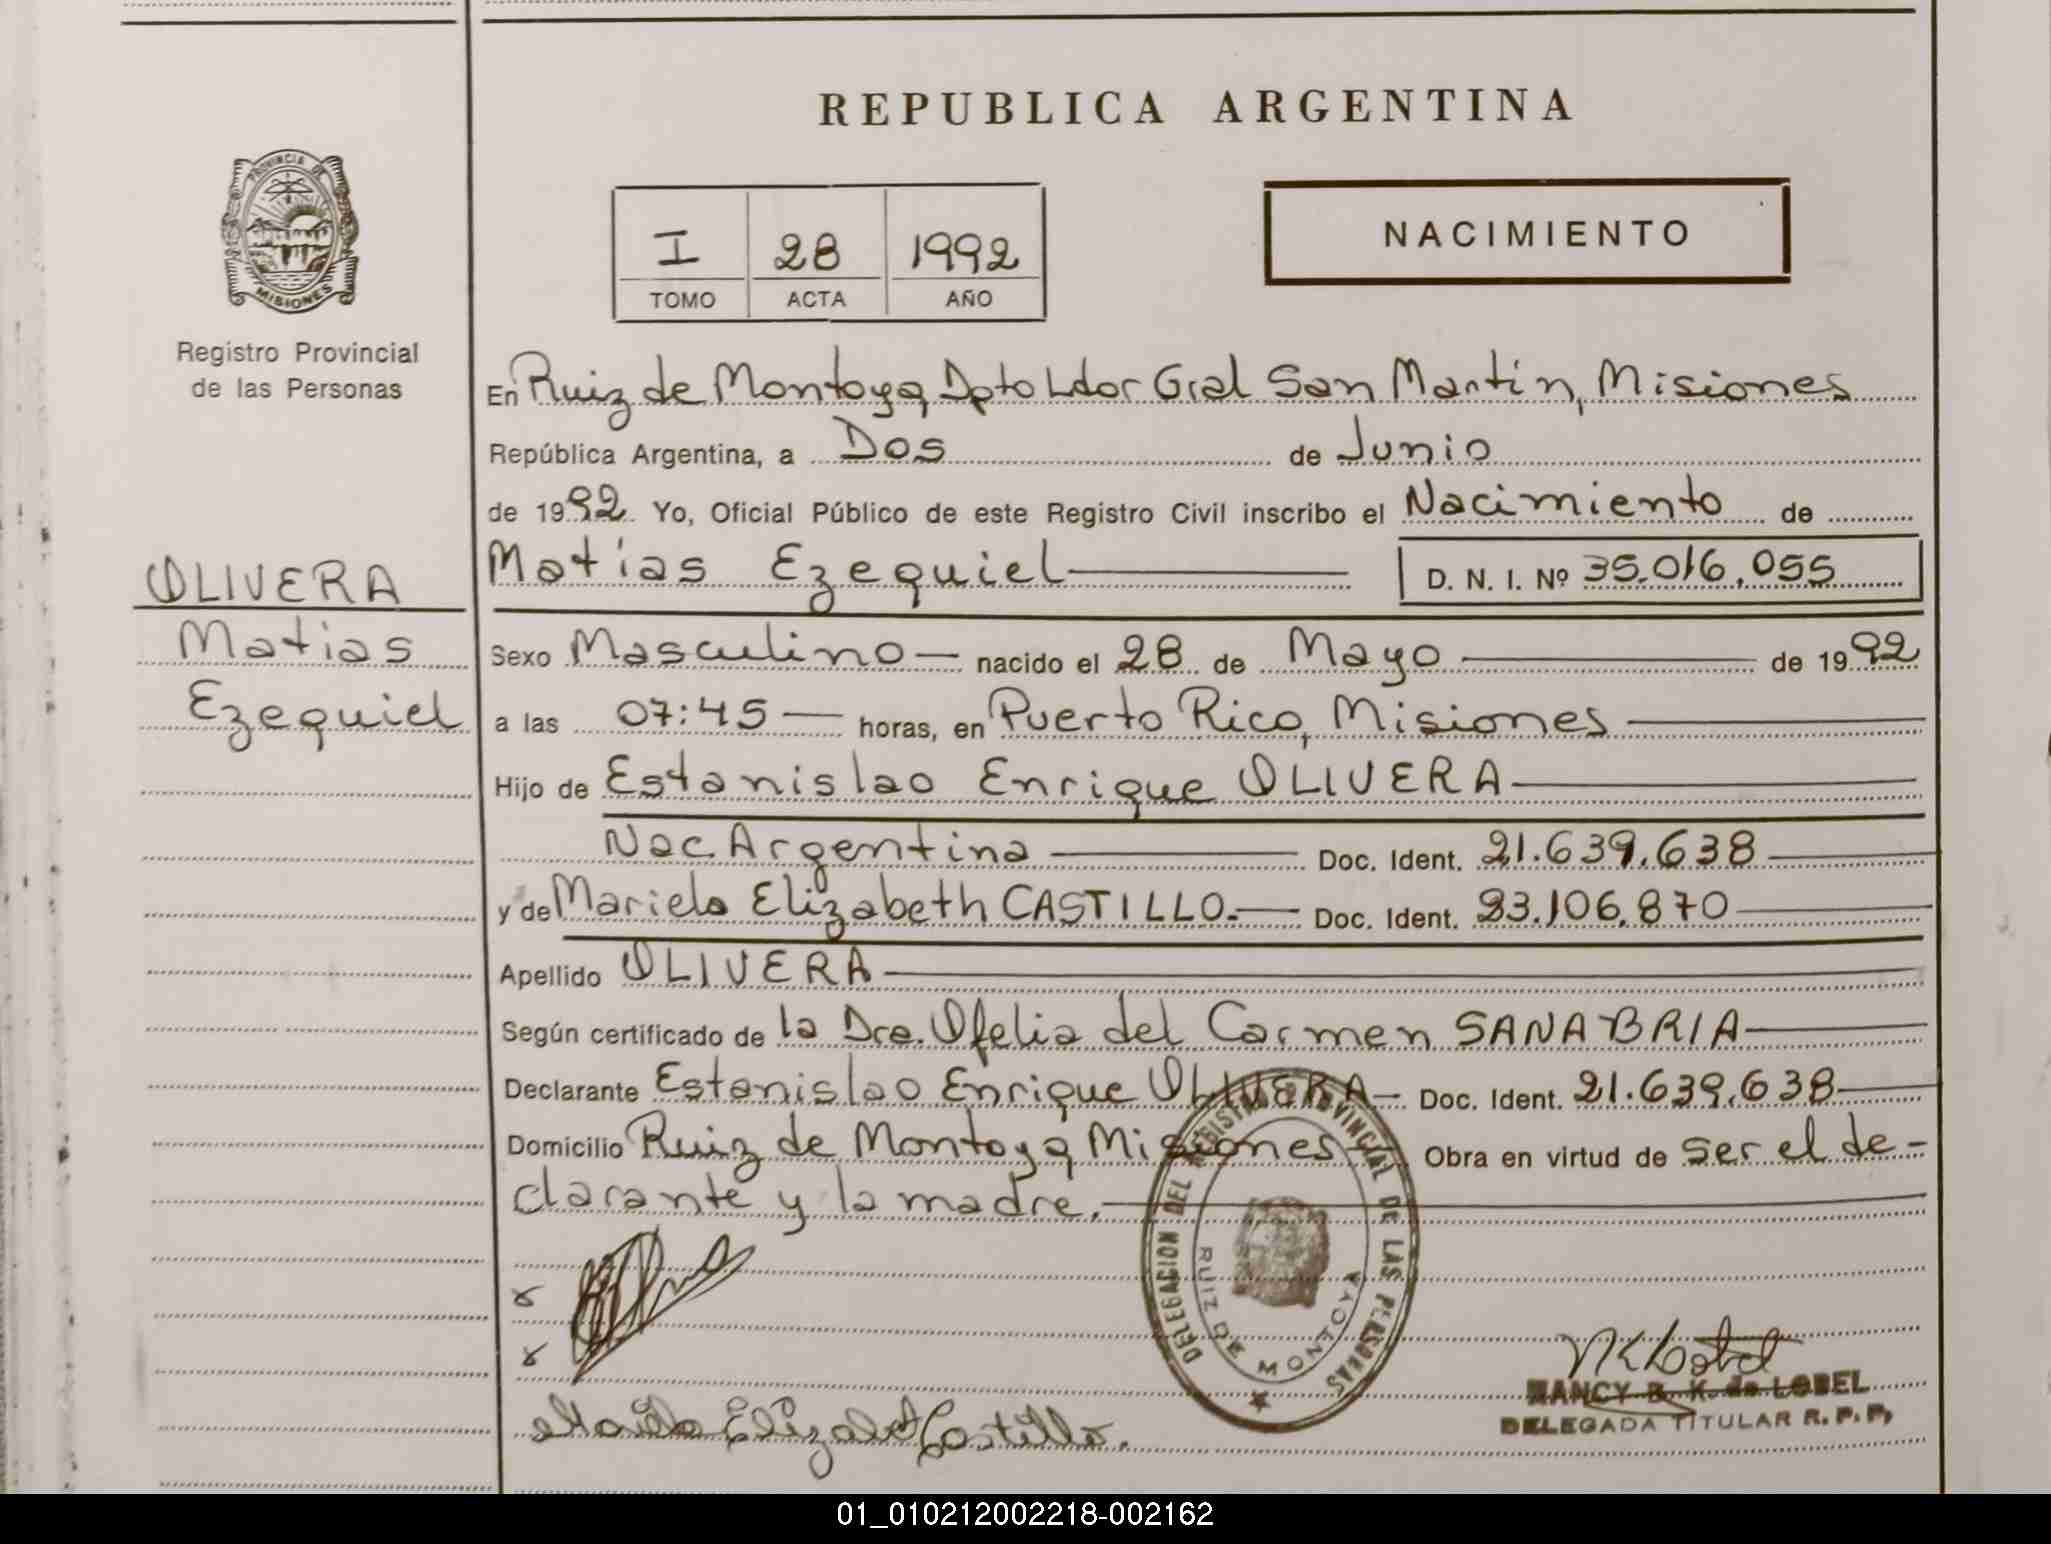 REPUBLICA ARGENTINA
PROVINCIA DE
MISIONES
Registro Provincial
de las Personas
I 28 1992
TOMO ACTA AÑO
NACIMIENTO
En Ruiz de Montoya, Dpto Ldor Gral San Martín, Misiones
República Argentina, a Dos de Junio
de 1992 Yo, Oficial Público de este Registro Civil inscribo el Nacimiento de
Matías Ezequiel D. N. I. Nº 35.016.055
OLIVERA
Matias
Ezequiel
Sexo Masculino — nacido el 28 de Mayo — de 1992
a las 07:45 — horas, en Puerto Rico, Misiones
Hijo de Estanislao Enrique OLIVERA
Nac. Argentina — Doc. Ident. 21.639.638
y de Mariela Elizabeth CASTILLO.- Doc. Ident. 23.106.870
Apellido OLIVERA
Según certificado de la Dra. Ofelia del Carmen SANABRIA
Declarante Estanislao Enrique OLIVERA — Doc. Ident. 21.639.638
Domicilio Ruiz de Montoya, Misiones Obra en virtud de ser el de-
clarante y la madre.-
DELEGACION DEL REGISTRO PROVINCIAL DE LAS PERSONAS
RUIZ DE MONTOYA
Mariela Elizabet Castillo.
NANCY B. K. de LOBEL
DELEGADA TITULAR R. P. P.
01_010212002218-002162